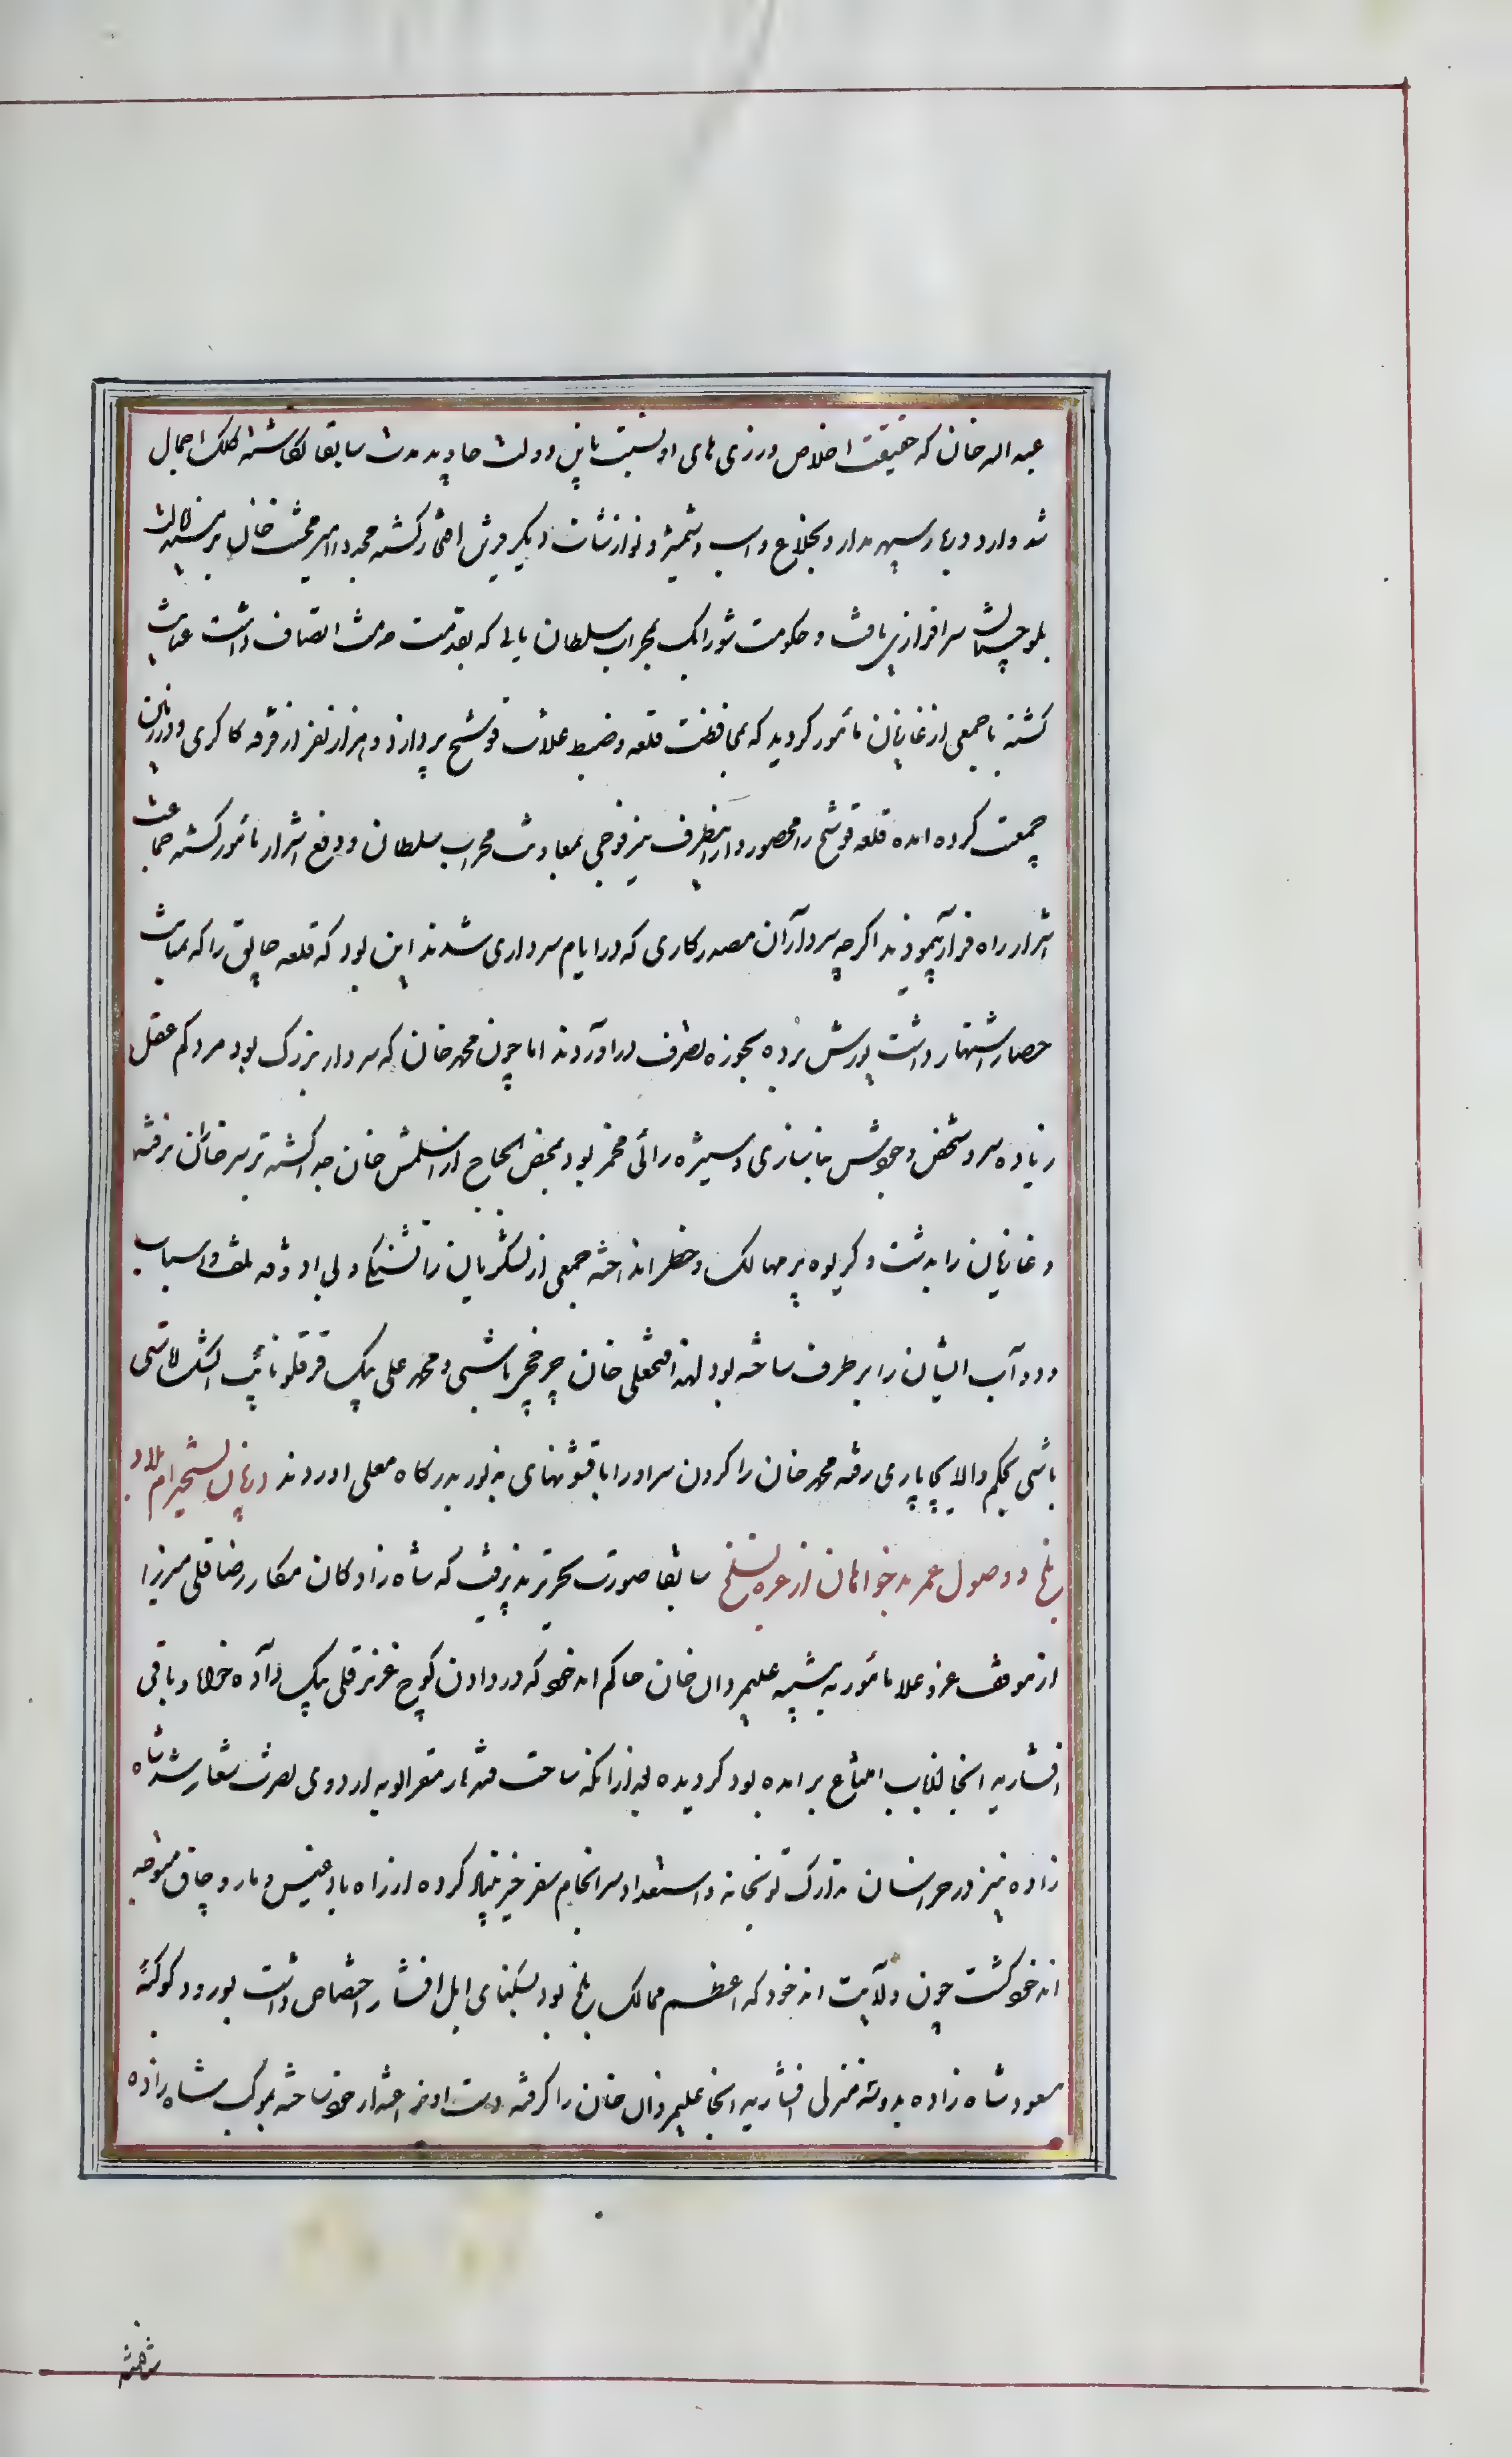 عبداله خان که حقیقت اخلاص ورزی های او نسبت باین دولت جاوید مدت سابقا نگاشته کلک اجمال
شد وارد دربار سپهر مدار و بخلاع و اسب و شمشیر و نوازشات دیگر قرین افتخار کشته مجددا امیر محبت خان بمرتبه ایالت
بلوچستان سرافرازی یافت و حکومت شورابک بمحراب سلطان بابی که بقدمت خدمت اتصاف داشت عنایت
کشته با جمعی از غازیان مأمور کردید که بمحافظت قلعه و ضبط غلات فوشنج پردازد دو هزار نفر از فرقه کاکری و درزبان
جمعیت کرده امده قلعه فوشنج را محصور و از اینطرف نیز فوجی بمعاونت محراب سلطان و دفع اشرار مأمور کشته جماعت
اشرار راه فرار پیمودند اکرچه سرداران مصدر کاری که در ایام سرداری شدند این بود که قلعه جالق را که بمتانت
حصار اشتهار داشت یورش برده بحوزه تصرف دراوردند اما چون محمد خان که سردار بزرک بود مرد کم عقل
زیاده سر و شخص وجودش بناسازی و ستیزه رائی مخمر بود بمحض الحاح از اسلمش خان جدا کشته بر سر خاران رفته
و غازیان را بدشت و کریوه پر مهالک و خطر انداخته جمعی از لشکریان را تشنکی و بی اذوقه تلف و اسباب
و دواب ایشان را بر طرف ساخته بود لهذا فتحعلی خان چرخچی باشی و محمد علی بیک قرقلو نایب ایشک اقاسی
باشی بحکم والا بچاپاری رفته محمد خان را کردن سر او را با قشونهای مذکور بدرکاه معلی اوردند در بیان تسخیر ام البلاد
بلخ و وصول عمر بدخواهان از غره بسلخ سابقا صورت تحریر پذیرفت که شاه زاد کان مکار رضا قلی میرزا
از موقف عز و علا مأمور به تنبیه علیمردان خان حاکم اندخود که در دادن کوچ عزیز قلی بیک داده خواه و باقی
افشاریه انجا بباب امتناع برامده بود کردیده بعد از انکه ساحت قندهار مقر الویه اردوی نصرت شعار شد شاه
زاده نیز در خراسان بتدارک توپخانه و استعداد سرانجام سفر خیر بنیاد کرده از راه بادغیس و ماروچاق متوجه
اندخود کشت چون ولایت اندخود که اعظم ممالک بلخ بود بسکنای ایل افشار اختصاص داشت بورود کوکبه
مسعود شاه زاده بدو سه منزلی افشاریه انجا علیمردان خان را کرفته دست اویز اعتذار خود ساخته بموکب شاه زاده
شتافتند